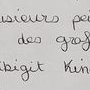 usieurs pei
des graf
bigit Kin